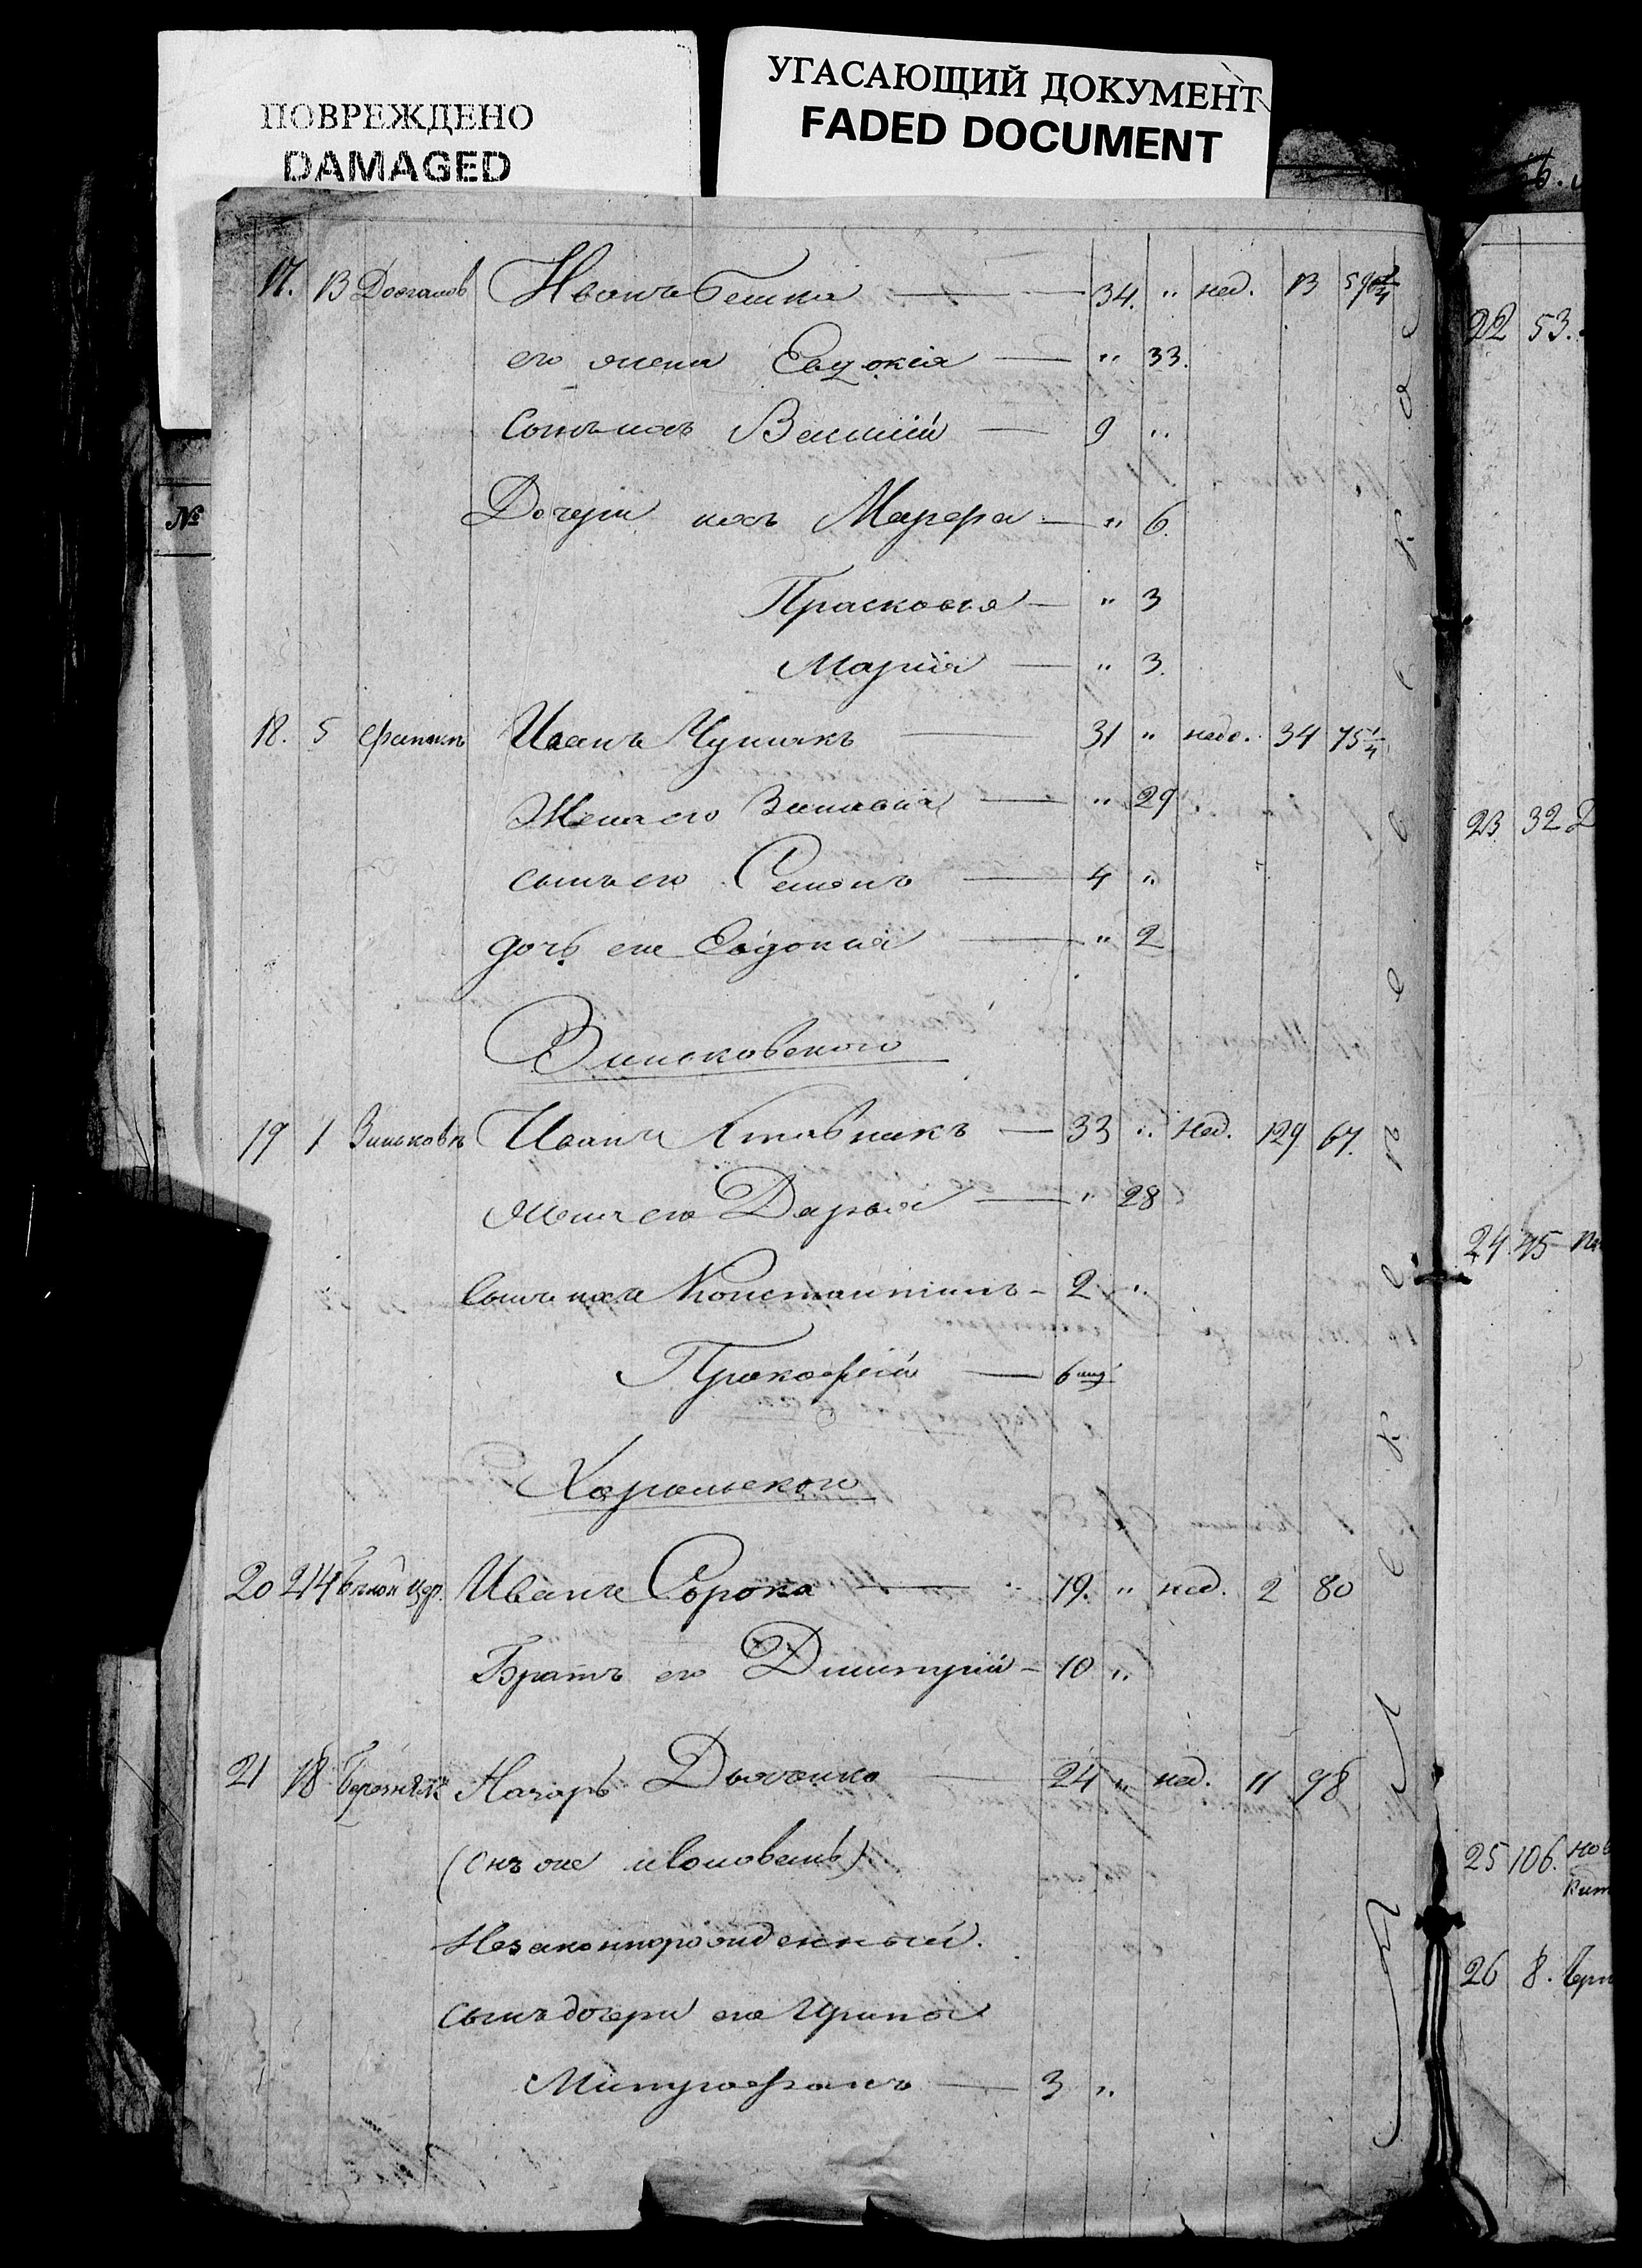 ПОВРЕЖДЕНО
DAMAGED
УГАСАЮЩИЙ ДОКУМЕНТ
FADED DOCUMENT
№
17. 13 Иванъ Гешка — 34. " нед. 13
его жена Евдокія — " 33.
Сынъ ихъ Василій — 9 "
Дочери ихъ Марфра — " 6.
Прасковья — " 3
Марія — " 3.
18. 5 Иванъ Чумакъ — 31 " недо. 34 75 1/4
Жена его — " 29
сынъ его Семенъ — 4 "
дочь его Евдокия — " 2
Зиньковского
19 1 Зиньковъ Иванъ — 33 " нед. 129 67.
жена его Дарья — " 28
Сынъ ихъ Константинъ - 2 "
Прокофій — 6 мц
Хорольского
20 214 Иванъ Сорока — 19. " нед. 2 80
Братъ его Димитрій - 10 "
21 18 Назаръ Дьяченко — 24 " нед. 11 98
(онъ же
Незаконнорожденный.
сынъ дочери его Ирины
Митрофанъ — 3 "
22 53.
23 32
24 45
25 106.
26 8.